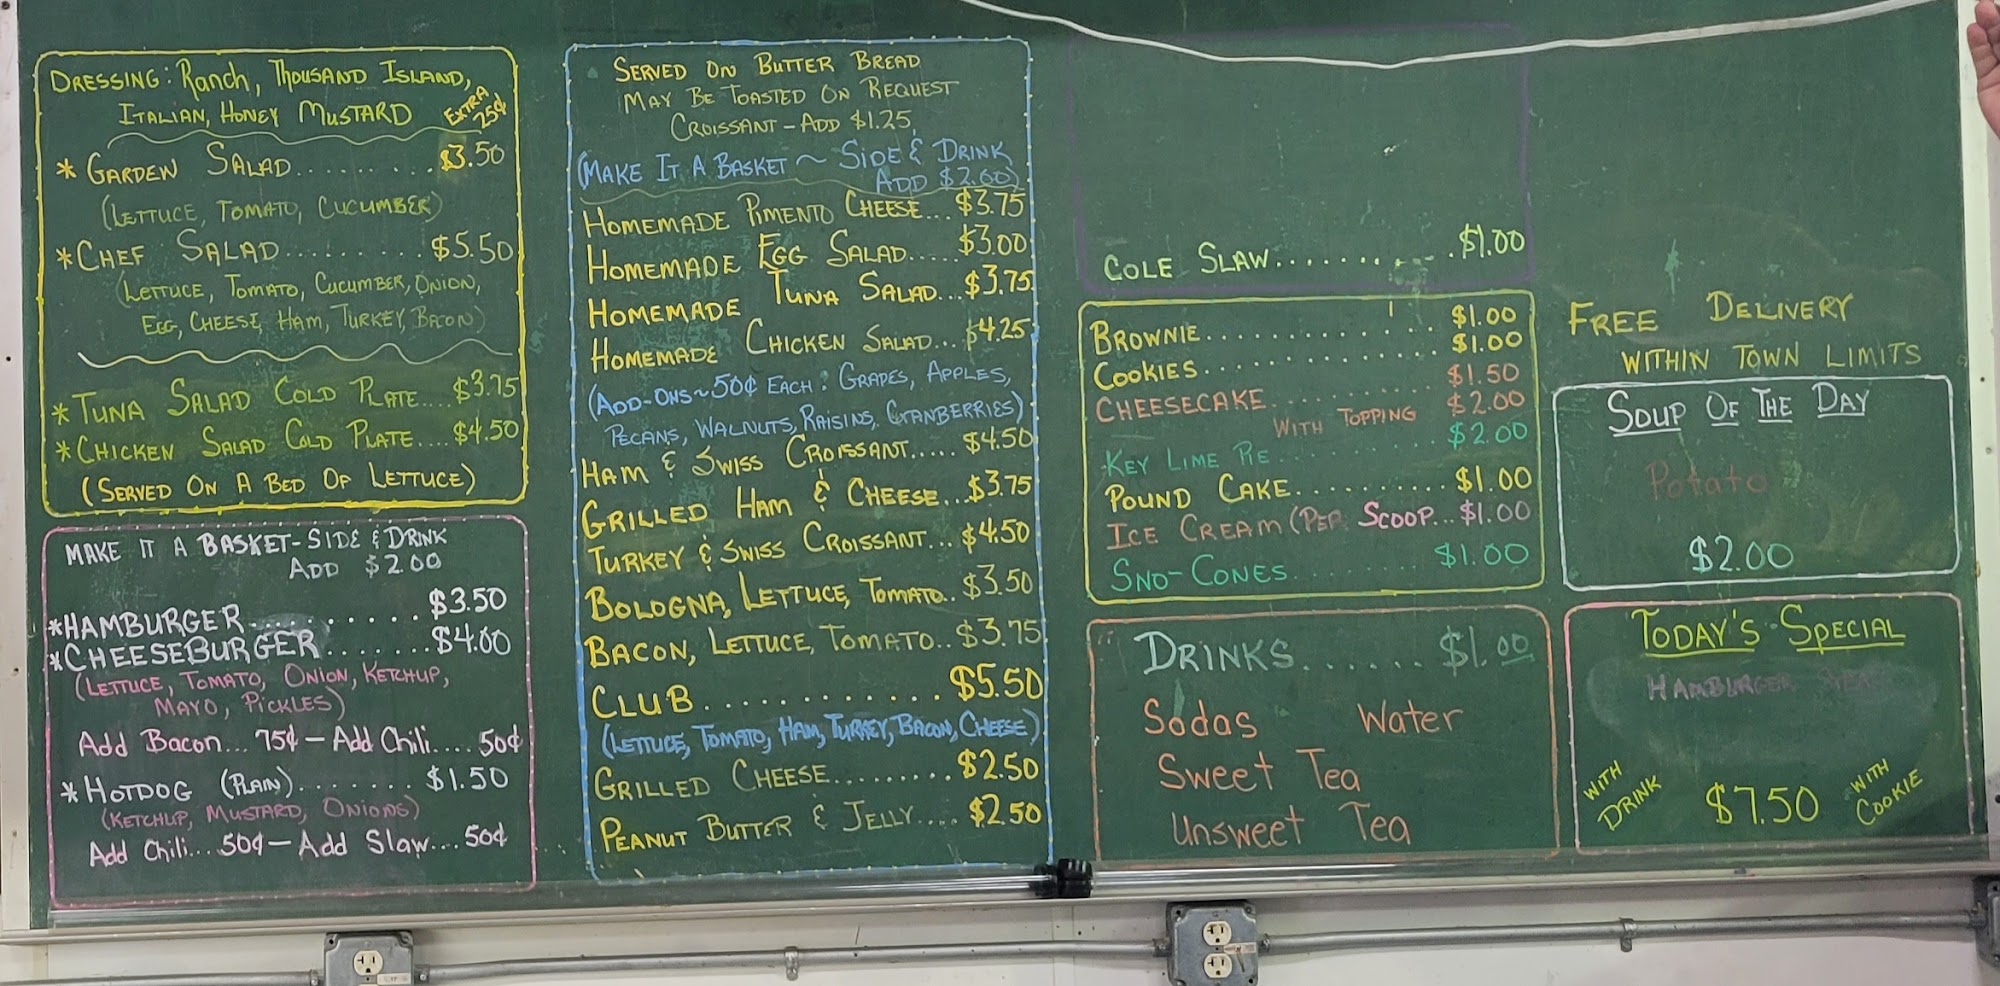 DRESSING: RANCH, THOUSAND ISLAND,
ITALIAN, HONEY MUSTARD EXTRA 25¢
* GARDEN SALAD......... $3.50
(LETTUCE, TOMATO, CUCUMBER)
* CHEF SALAD......... $5.50
(LETTUCE, TOMATO, CUCUMBER, ONION,
EGG, CHEESE, HAM, TURKEY, BACON)
* TUNA SALAD COLD PLATE... $3.75
* CHICKEN SALAD COLD PLATE.... $4.50
(SERVED ON A BED OF LETTUCE)
MAKE IT A BASKET - SIDE & DRINK
ADD $2.00
* HAMBURGER.......... $3.50
* CHEESEBURGER....... $4.00
(LETTUCE, TOMATO, ONION, KETCHUP,
MAYO, PICKLES)
Add Bacon... 75¢ - Add Chili.... 50¢
* HOTDOG (PLAIN)........ $1.50
(KETCHUP, MUSTARD, ONIONS)
Add Chili... 50¢ - Add Slaw... 50¢
SERVED ON BUTTER BREAD
MAY BE TOASTED ON REQUEST
CROISSANT - ADD $1.25
(MAKE IT A BASKET ~ SIDE & DRINK
ADD $2.00)
HOMEMADE PIMENTO CHEESE... $3.75
HOMEMADE EGG SALAD..... $3.00
HOMEMADE TUNA SALAD... $3.75
HOMEMADE CHICKEN SALAD... $4.25
(ADD-ONS ~ 50¢ EACH: GRAPES, APPLES,
PECANS, WALNUTS, RAISINS, CRANBERRIES)
HAM & SWISS CROISSANT..... $4.50
GRILLED HAM & CHEESE... $3.75
TURKEY & SWISS CROISSANT... $4.50
BOLOGNA, LETTUCE, TOMATO.. $3.50
BACON, LETTUCE, TOMATO.. $3.75
CLUB............ $5.50
(LETTUCE, TOMATO, HAM, TURKEY, BACON, CHEESE)
GRILLED CHEESE......... $2.50
PEANUT BUTTER & JELLY.... $2.50
COLE SLAW............ $1.00
BROWNIE............... $1.00
COOKIES............... $1.00
CHEESECAKE.......... $1.50
WITH TOPPING $2.00
KEY LIME PIE.......... $2.00
POUND CAKE.......... $1.00
ICE CREAM (PER SCOOP... $1.00
SNO-CONES.......... $1.00
DRINKS...... $1.00
Sodas Water
Sweet Tea
Unsweet Tea
FREE DELIVERY
WITHIN TOWN LIMITS
SOUP OF THE DAY
Potato
$2.00
TODAY'S SPECIAL
HAMBURGER
WITH DRINK $7.50 WITH COOKIE